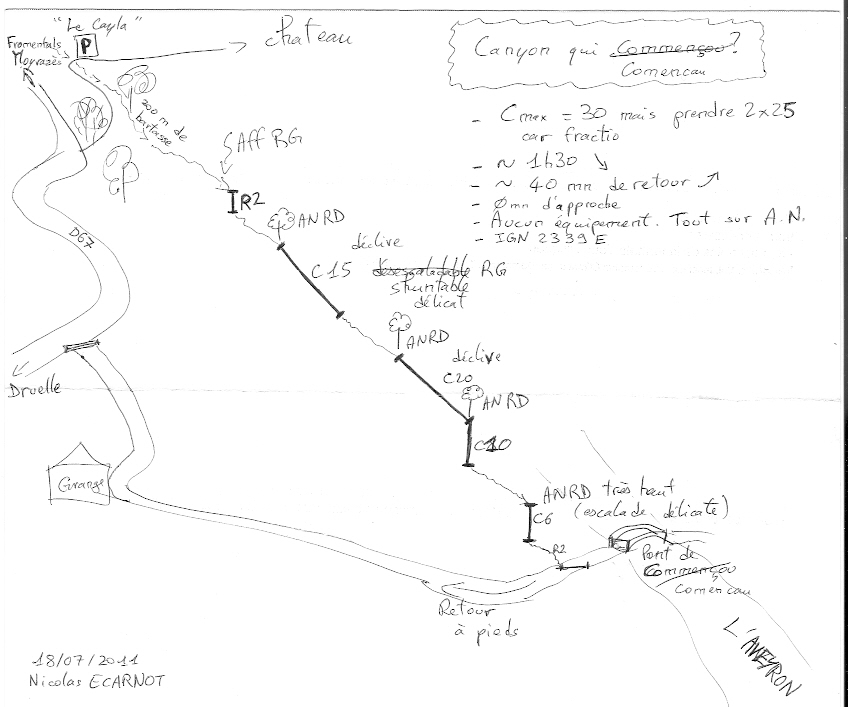 "Le Cayla"
P
Fromentals
Moyrazès
chateau
Canyon qui Commençou?
Comencau
200 m de
bartasse
- Cmax = 30 mais prendre 2x25
car fractio
- ~ 1h30 ↘
- ~ 40 mn de retour ↗
- Ømn d'approche
- Aucun équipement. Tout sur A.N.
- IGN 2339 E
Aff RG
R2
ANRD
D67
déclive
C15 désescaladable RG
shuntable
délicat
ANRD
déclive
C20
ANRD
C10
Druelle
Grange
ANRD très haut
(escalade délicate)
C6
R2
Pont de
Commençou
Comencau
Retour
à pieds
L'AVEYRON
18/07/2011
Nicolas ECARNOT